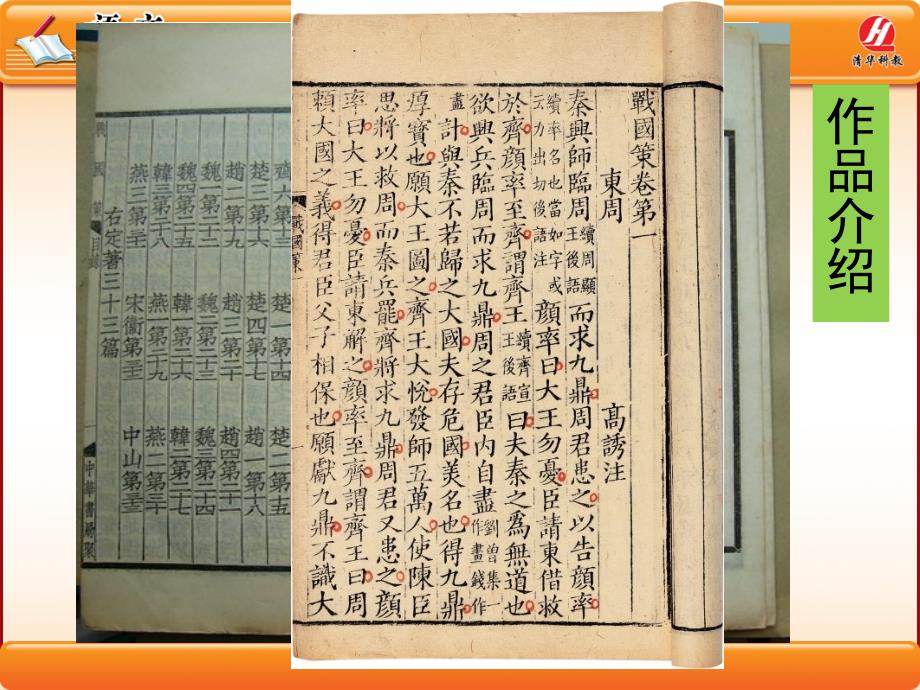 清华科教
作品介绍
戰國策卷第一
東周 高誘注
秦興師臨周續周顯王後語而求九鼎周君患之以告顔率
續率名也當如字或云力出切後語注顔率曰大王勿憂臣請東借救
於齊顔率至齊謂齊王續齊宣王後語曰夫秦之爲無道也
欲興兵臨周而求九鼎周之君臣内自盡劉曽集一作畫錢作
畫計與秦不若歸之大國夫存危國美名也得九鼎
厚寳也願大王圖之齊王大悅發師五萬人使陳臣
思將以救周而秦兵罷齊將求九鼎周君又患之顔
率曰大王勿憂臣請東解之顔率至齊謂齊王曰周
賴大國之義得君臣父子相保也願獻九鼎不識大
戰國策一
齊六第十三 楚一第十四 楚二第十五
楚三第十六 楚四第十七 趙一第十八
趙二第十九 趙三第二十 趙四第二十一
魏一第二十二 魏二第二十三 魏三第二十四
魏四第二十五 韓一第二十六 韓二第二十七
韓三第二十八 燕一第二十九 燕二第三十
燕三第三十一 宋衞第三十二 中山第三十三
右定著三十三篇
戰國策 目錄 中華書局聚